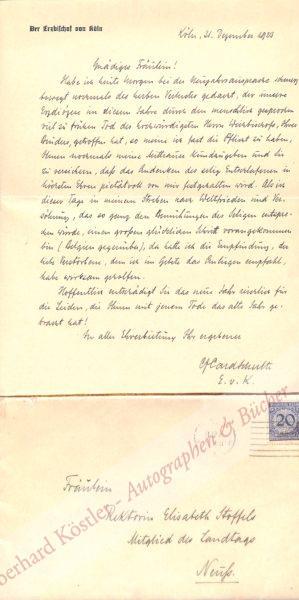 Der Erzbischof von Köln
Köln, 31. Dezember 1923
Gnädiges Fräulein!
Habe ich heute Morgen bei der Neujahrsansprache schmerz-
bewegt nochmals des herben Verlustes gedacht, der unsere
Erzdiözese in diesem Jahre durch den menschlich gesprochen
viel zu frühen Tod des Hochwürdigsten Herrn Weihbischofs, Ihres
Bruders, getroffen hat, so meine ich fast die Pflicht zu haben,
Ihnen nochmals meine Mittrauer kundzugeben und Sie
zu versichern, daß das Andenken des selig Entschlafenen in
höchsten Ehren pietätvoll von mir festgehalten wird. Als in
diesen Tagen in meinem Streben nach Weltfrieden und Ver-
söhnung, das so ganz den Bemühungen des Seligen entspre-
chen würde, einen großen glücklichen Schritt vorangekommen
bin (Belgien gegenüber), da hatte ich die Empfindung, der
liebe Verstorbene, dem ich im Gebete das Anliegen empfahl,
habe wirksam geholfen.
Hoffentlich entschädigt Sie das neue Jahr reichlich für
die Leiden, die Ihnen mit jenem Tode das alte Jahr ge-
bracht hat!
In aller Ehrerbietung Ihr ergebener
Card Schulte
E. v. K.
20
Fräulein
Rektorin Elisabeth Stoffels
Mitglied des Landtags
Neuß.
Eberhard Köstler - Autographen & Bücher